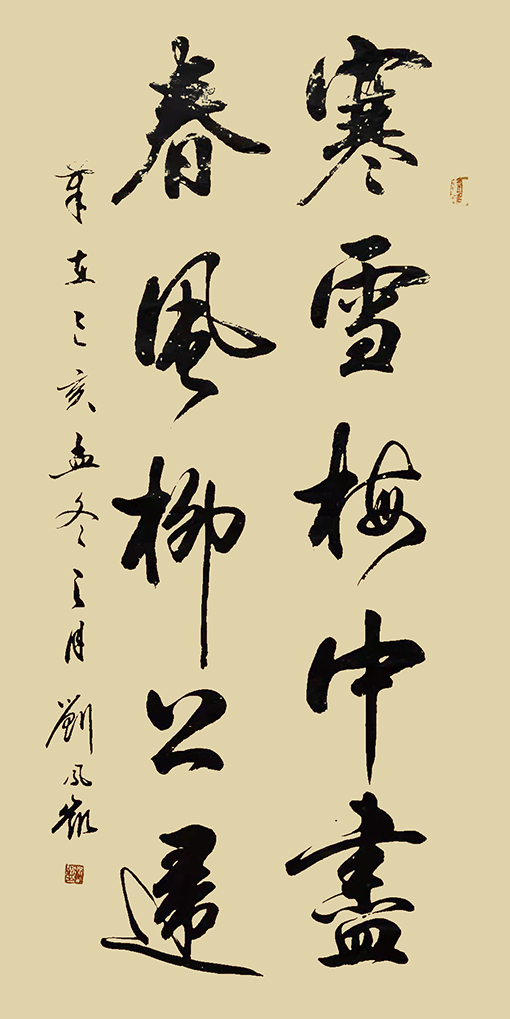 寒雪梅中盡
春風柳上歸
在己亥孟冬之月劉鳳